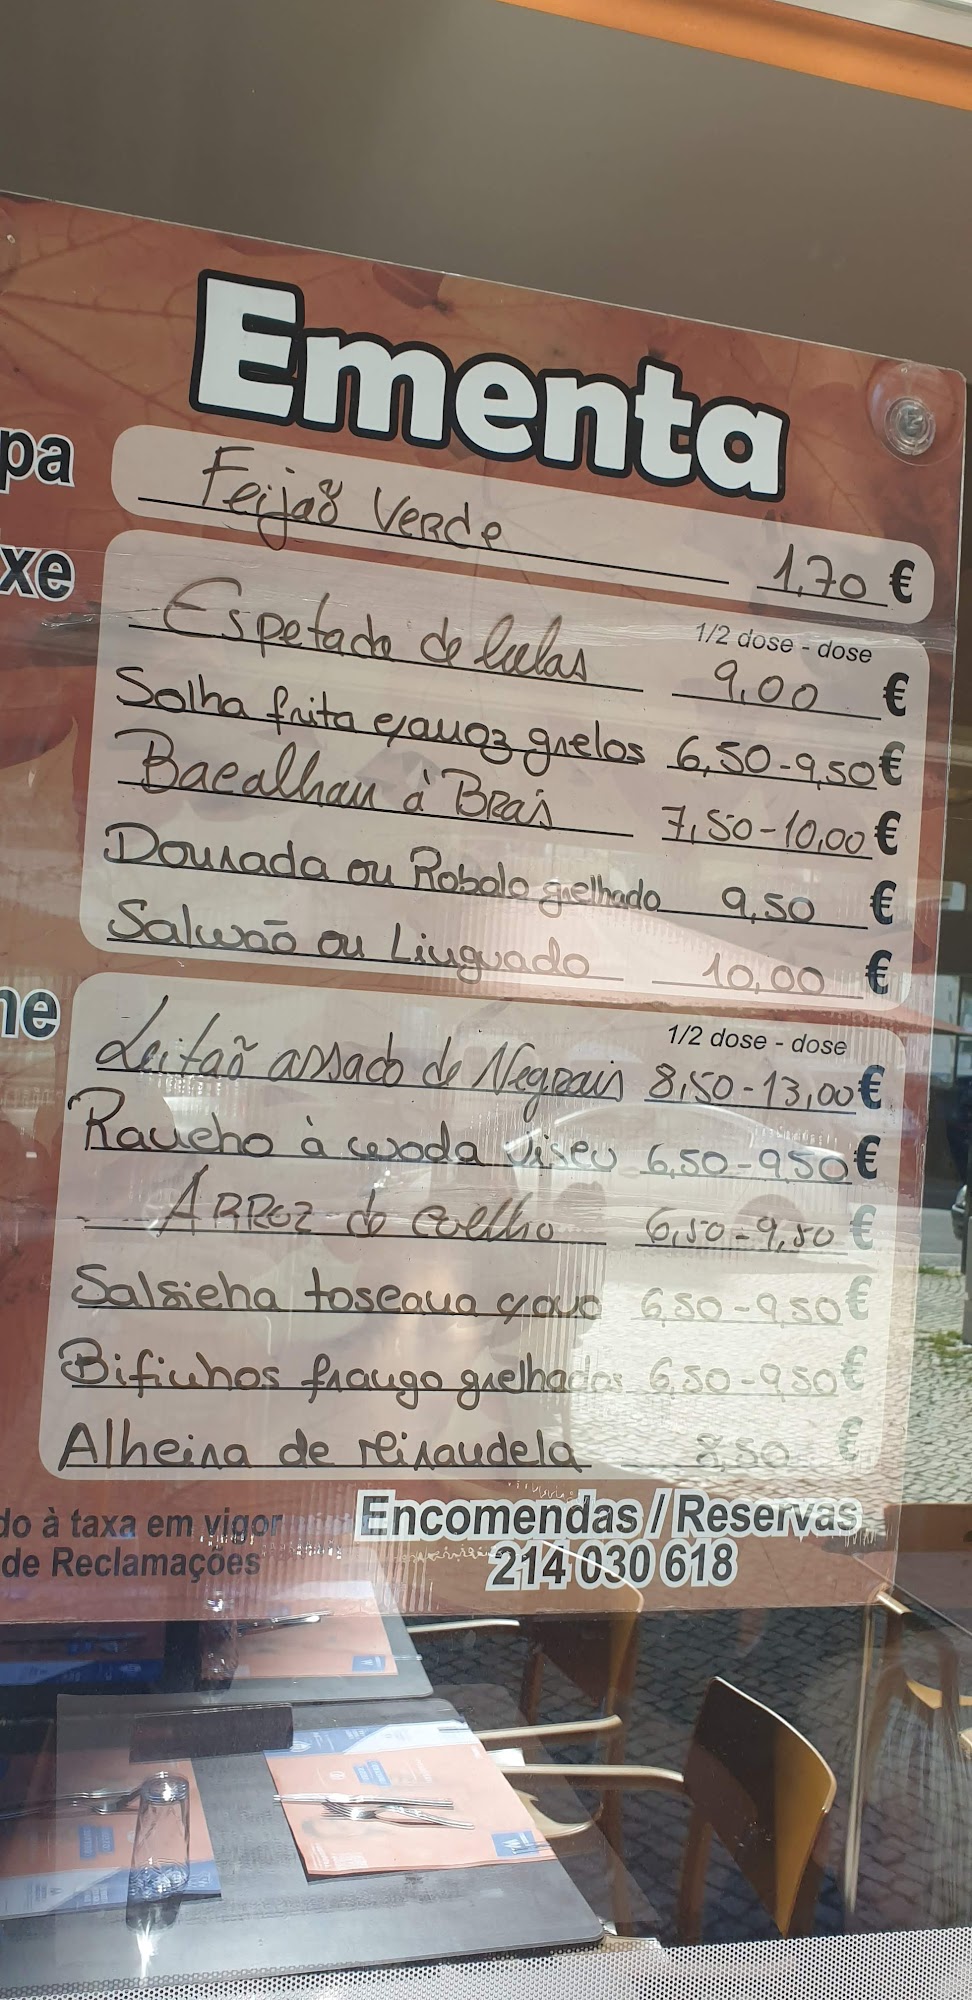 Ementa
pa Feijão Verde 1,70 €
xe
1/2 dose - dose
Espetada de lulas 9,00 €
Solha frita c/arroz grelos 6,50-9,50€
Bacalhau à Brás 7,50-10,00€
Dourada ou Robalo grelhado 9,50 €
Salmão ou Linguado 10,00 €
ne 1/2 dose - dose
Leitão assado de Negrais 8,50-13,00€
Rancho à moda Viseu 6,50-9,50€
Arroz de coelho 6,50-9,50 €
Salsicha toscana c/ovo 6,50-9,50€
Bifinhos frango grelhados 6,50-9,50€
Alheira de Mirandela 8,50 €
do à taxa em vigor Encomendas / Reservas
de Reclamações 214 030 618